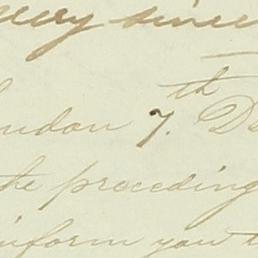 very since
London 7.th De
the preceding
inform you t